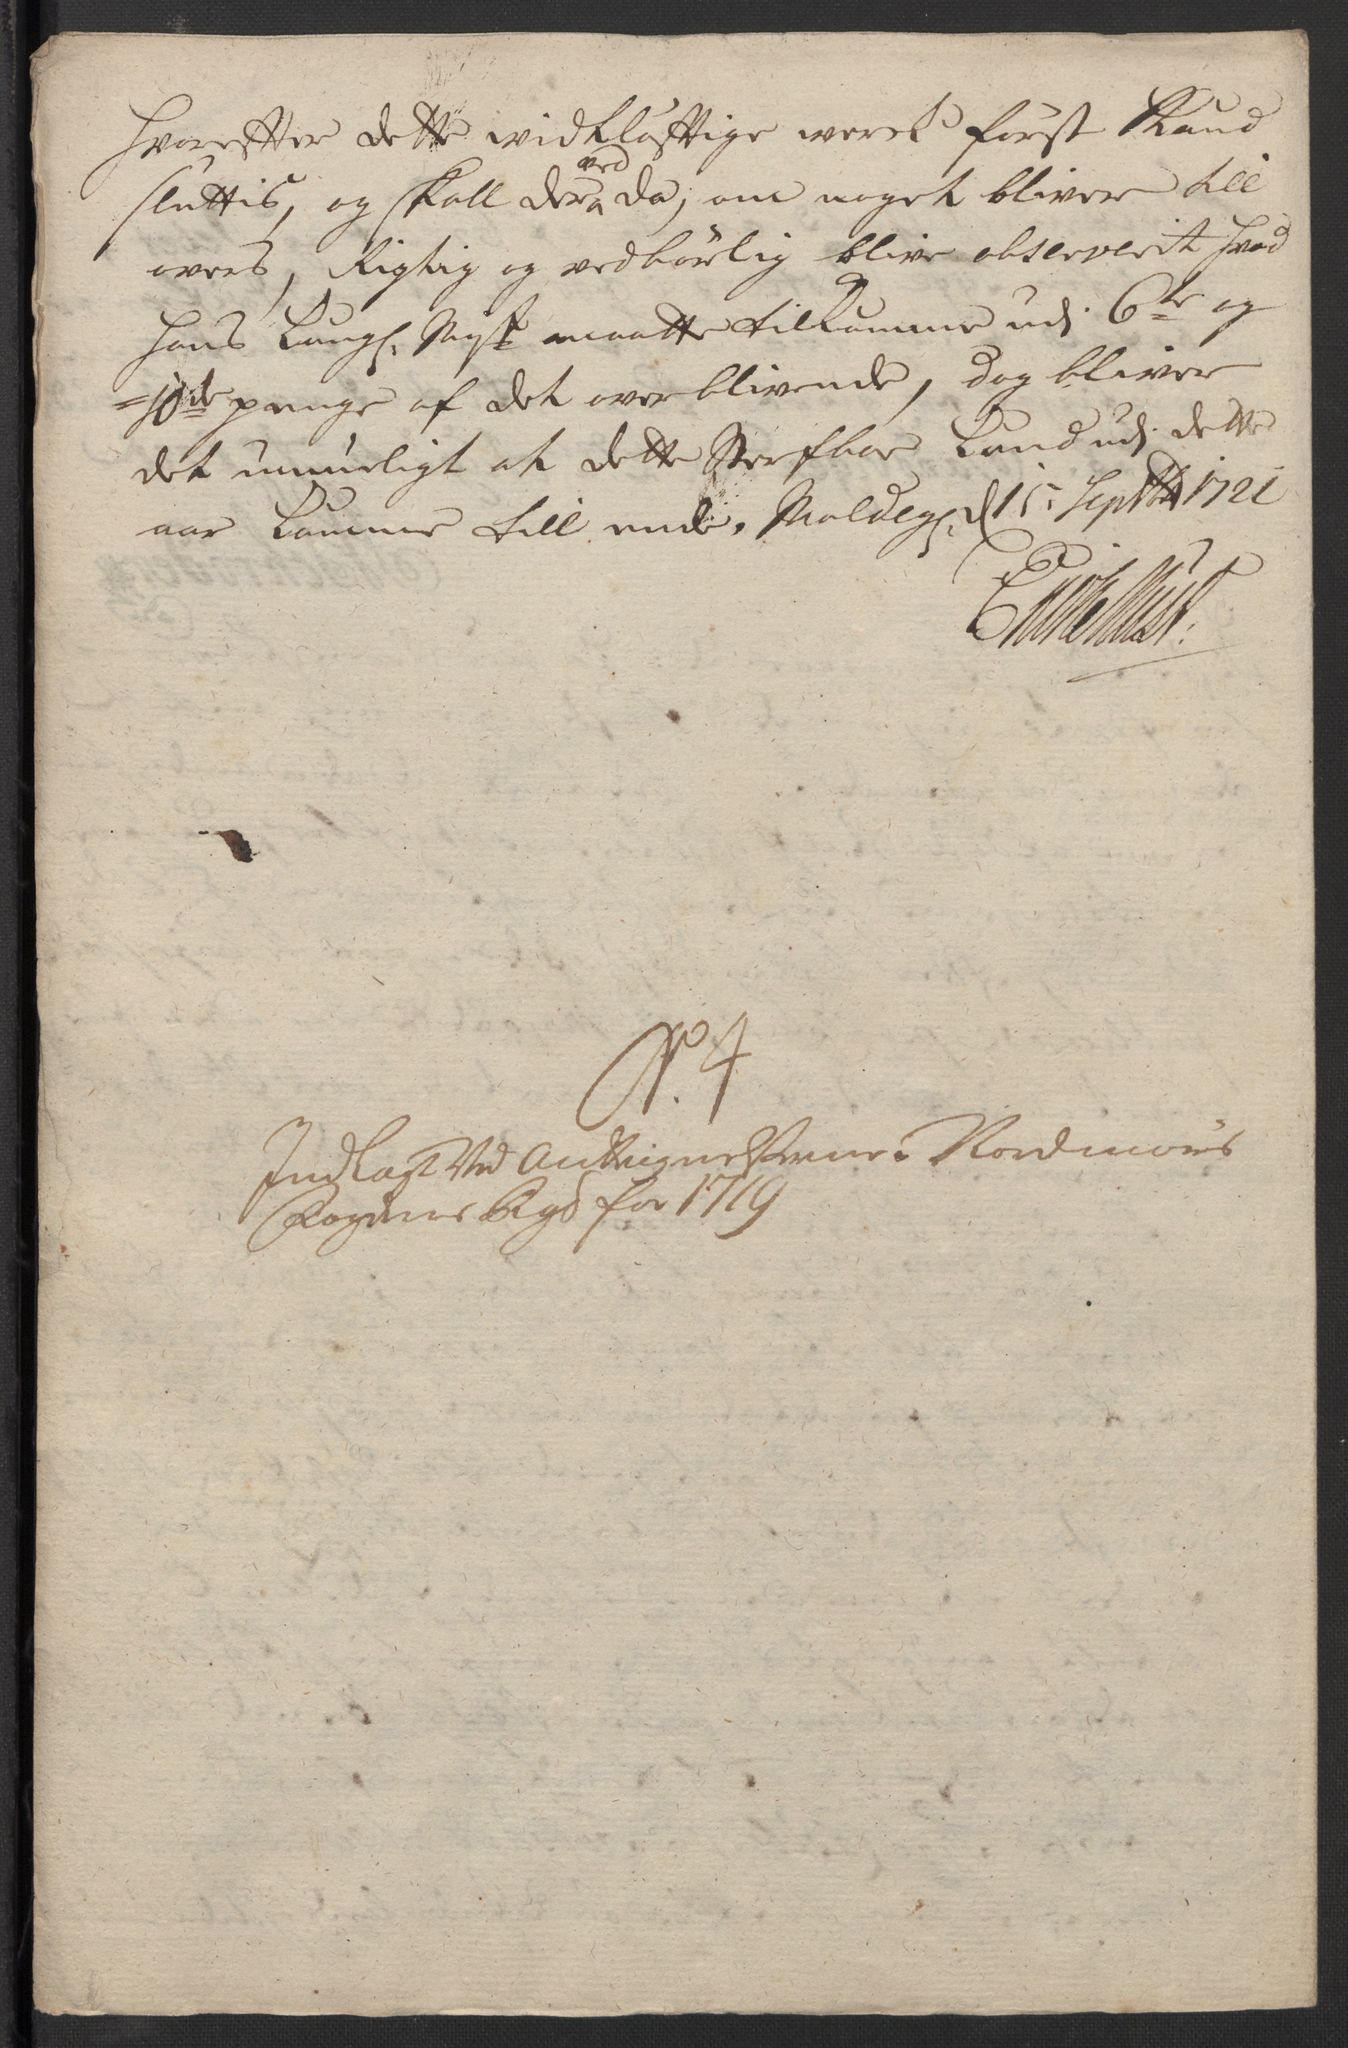 hvorefter dette widtløfftige werck først kand
sluttis, og skall der ved da, om noget bliver till
overs, Rigtig og vedbørlig blive observerit hvad
hans Kongl. Mayst maatte tilkomme udj 6te og
=10de penge af det overblivende, dog bliver
det umueligt at dette Sterfboe kand udj dette
aar komme till ende. Moldeg d 15 Septbr 1721
No. 4
Indlagt Ved Antteignelserne Nordmørs
Fogderies Rgs for 1719